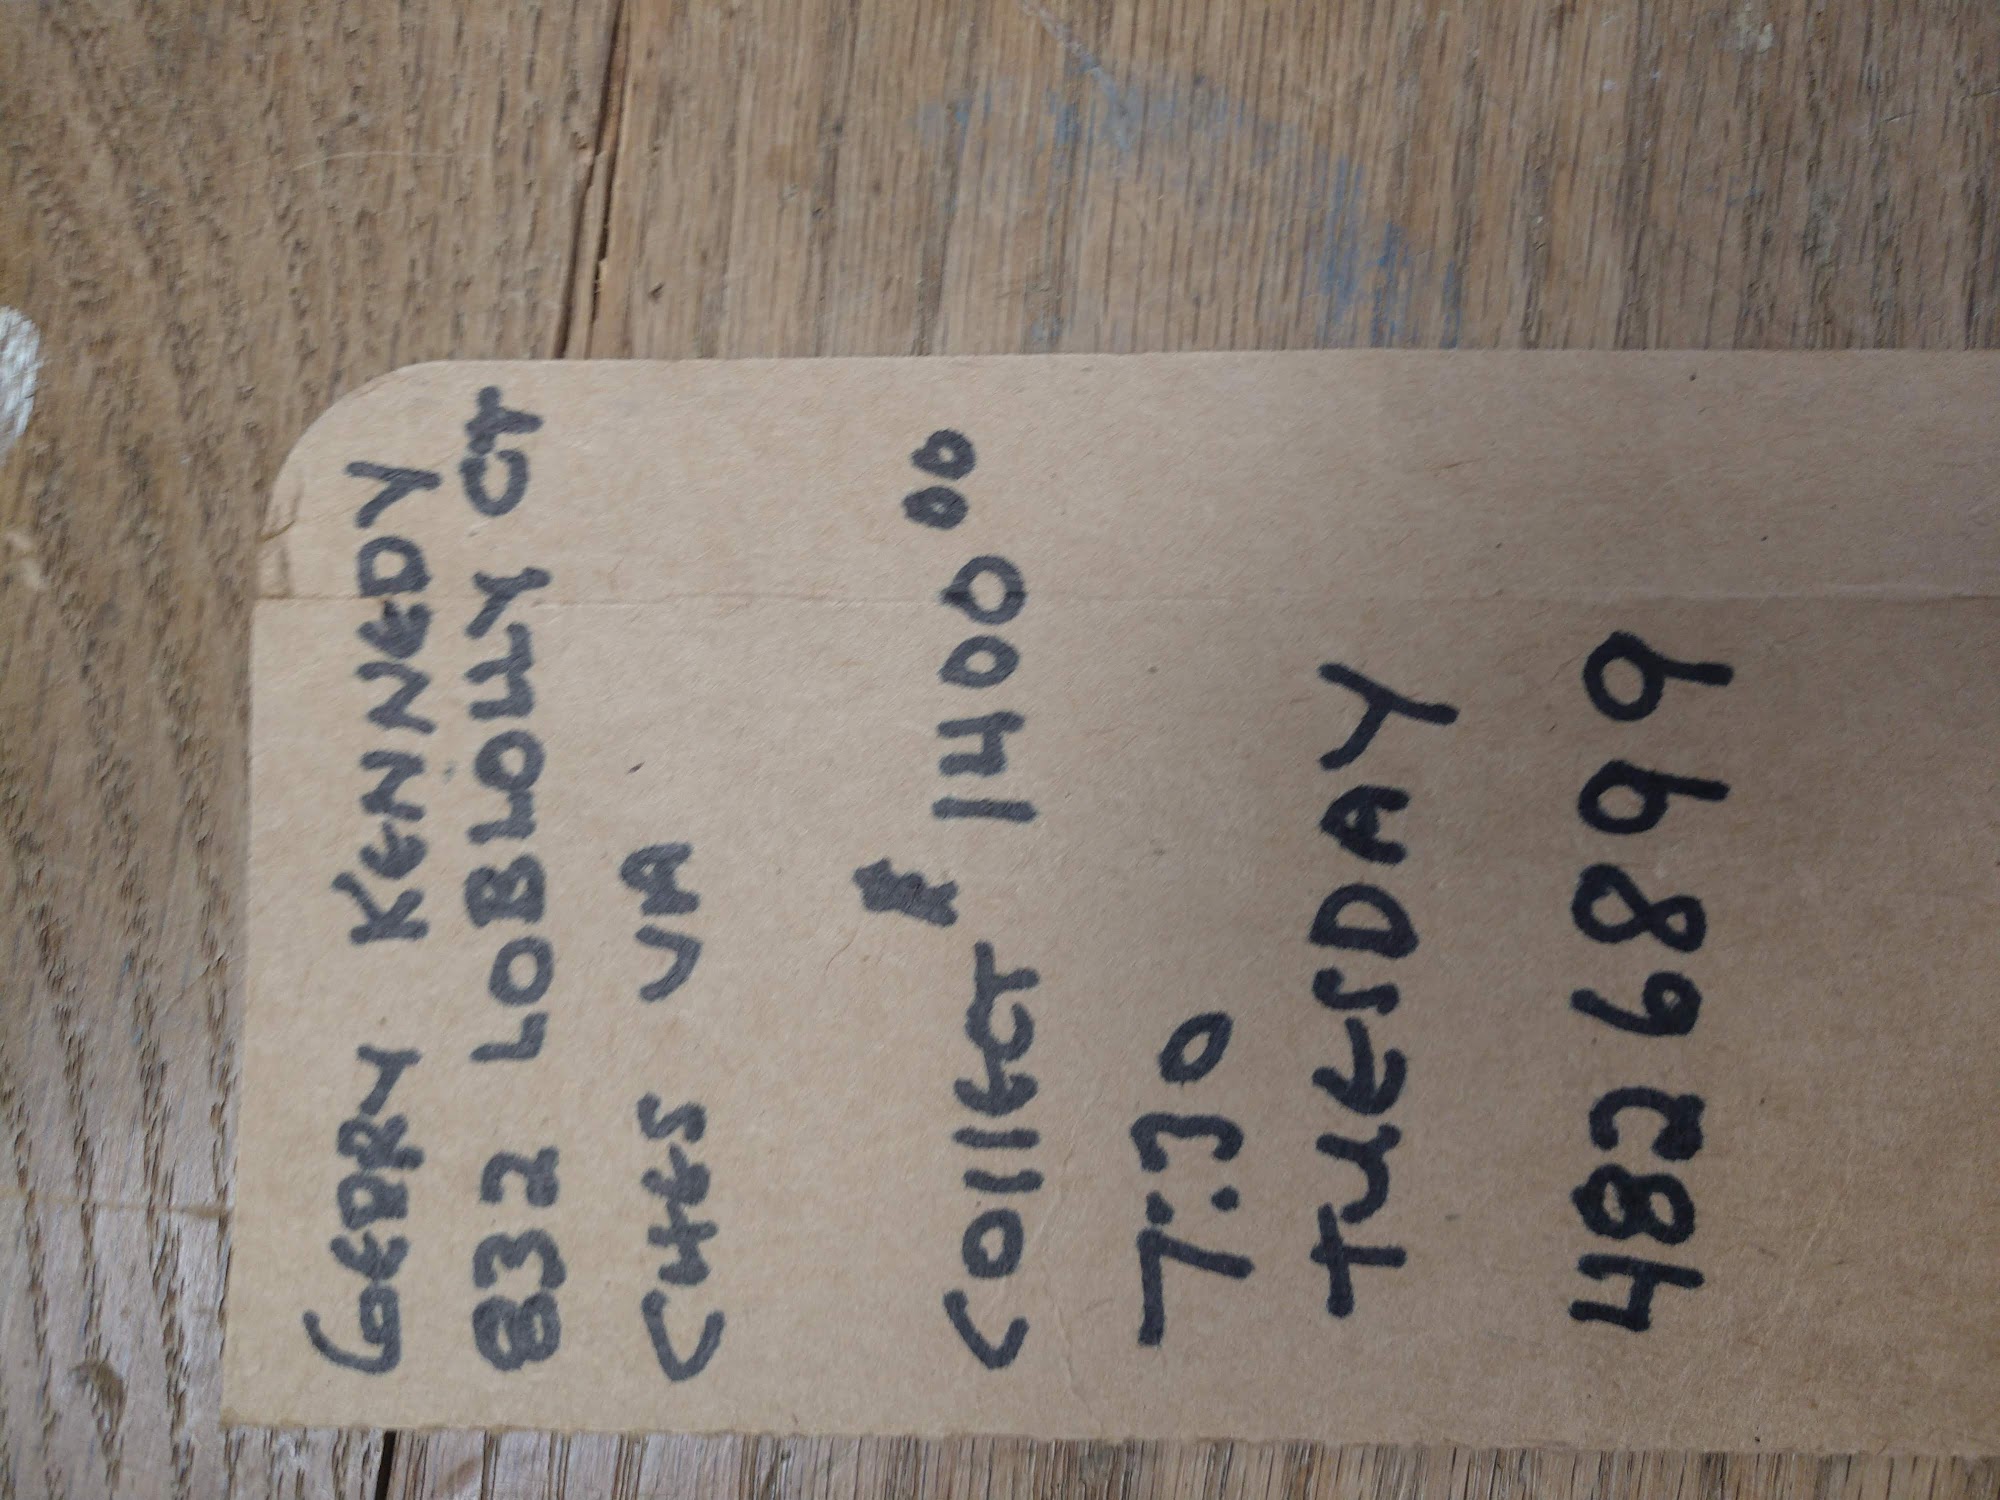 GERRY KENNEDY
832 LOBLOLLY CT
CHES VA
COllECT $ 1400 00
7:30
TUESDAY
482 6899